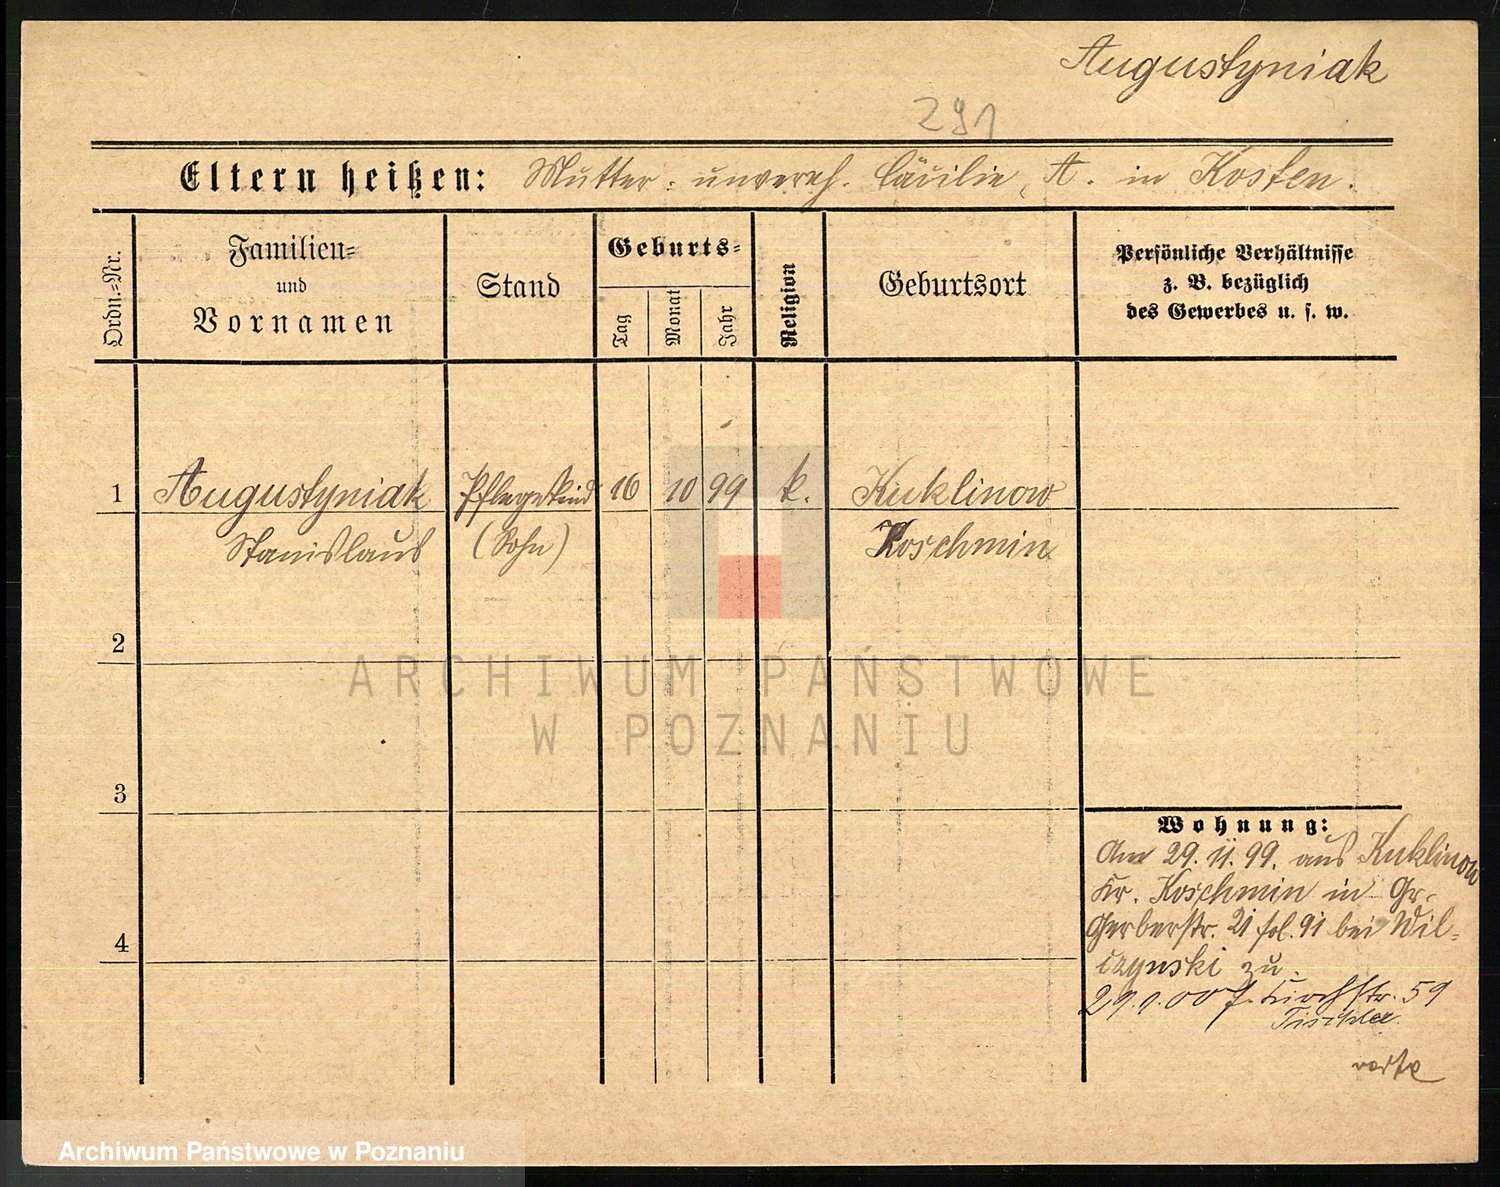 Augustyniak
291
Eltern heißen: Mutter: unvereh. Cäcilie A. in Kosten.
Ordn.=Nr.
Familien=
und
Vornamen
Stand
Geburts=
Tag
Monat
Jahr
Religion
Geburtsort
Persönliche Verhältnisse
z. B. bezüglich
des Gewerbes u. s. w.
1 Augustyniak Pflegekind 16 10 99 k. Kuklinow
Stanislaus (Sohn) Koschmin
2
ARCHIWUM PAŃSTWOWE
W POZNANIU
3
Wohnung:
Am 29. 11. 99. aus Kuklinow
Kr. Koschmin in Gr.
Gerberstr. 21 fol. 91 bei Wil=
czynski zu.
4
29.1.00 Kirchstr. 59
Tischler
Archiwum Państwowe w Poznaniu